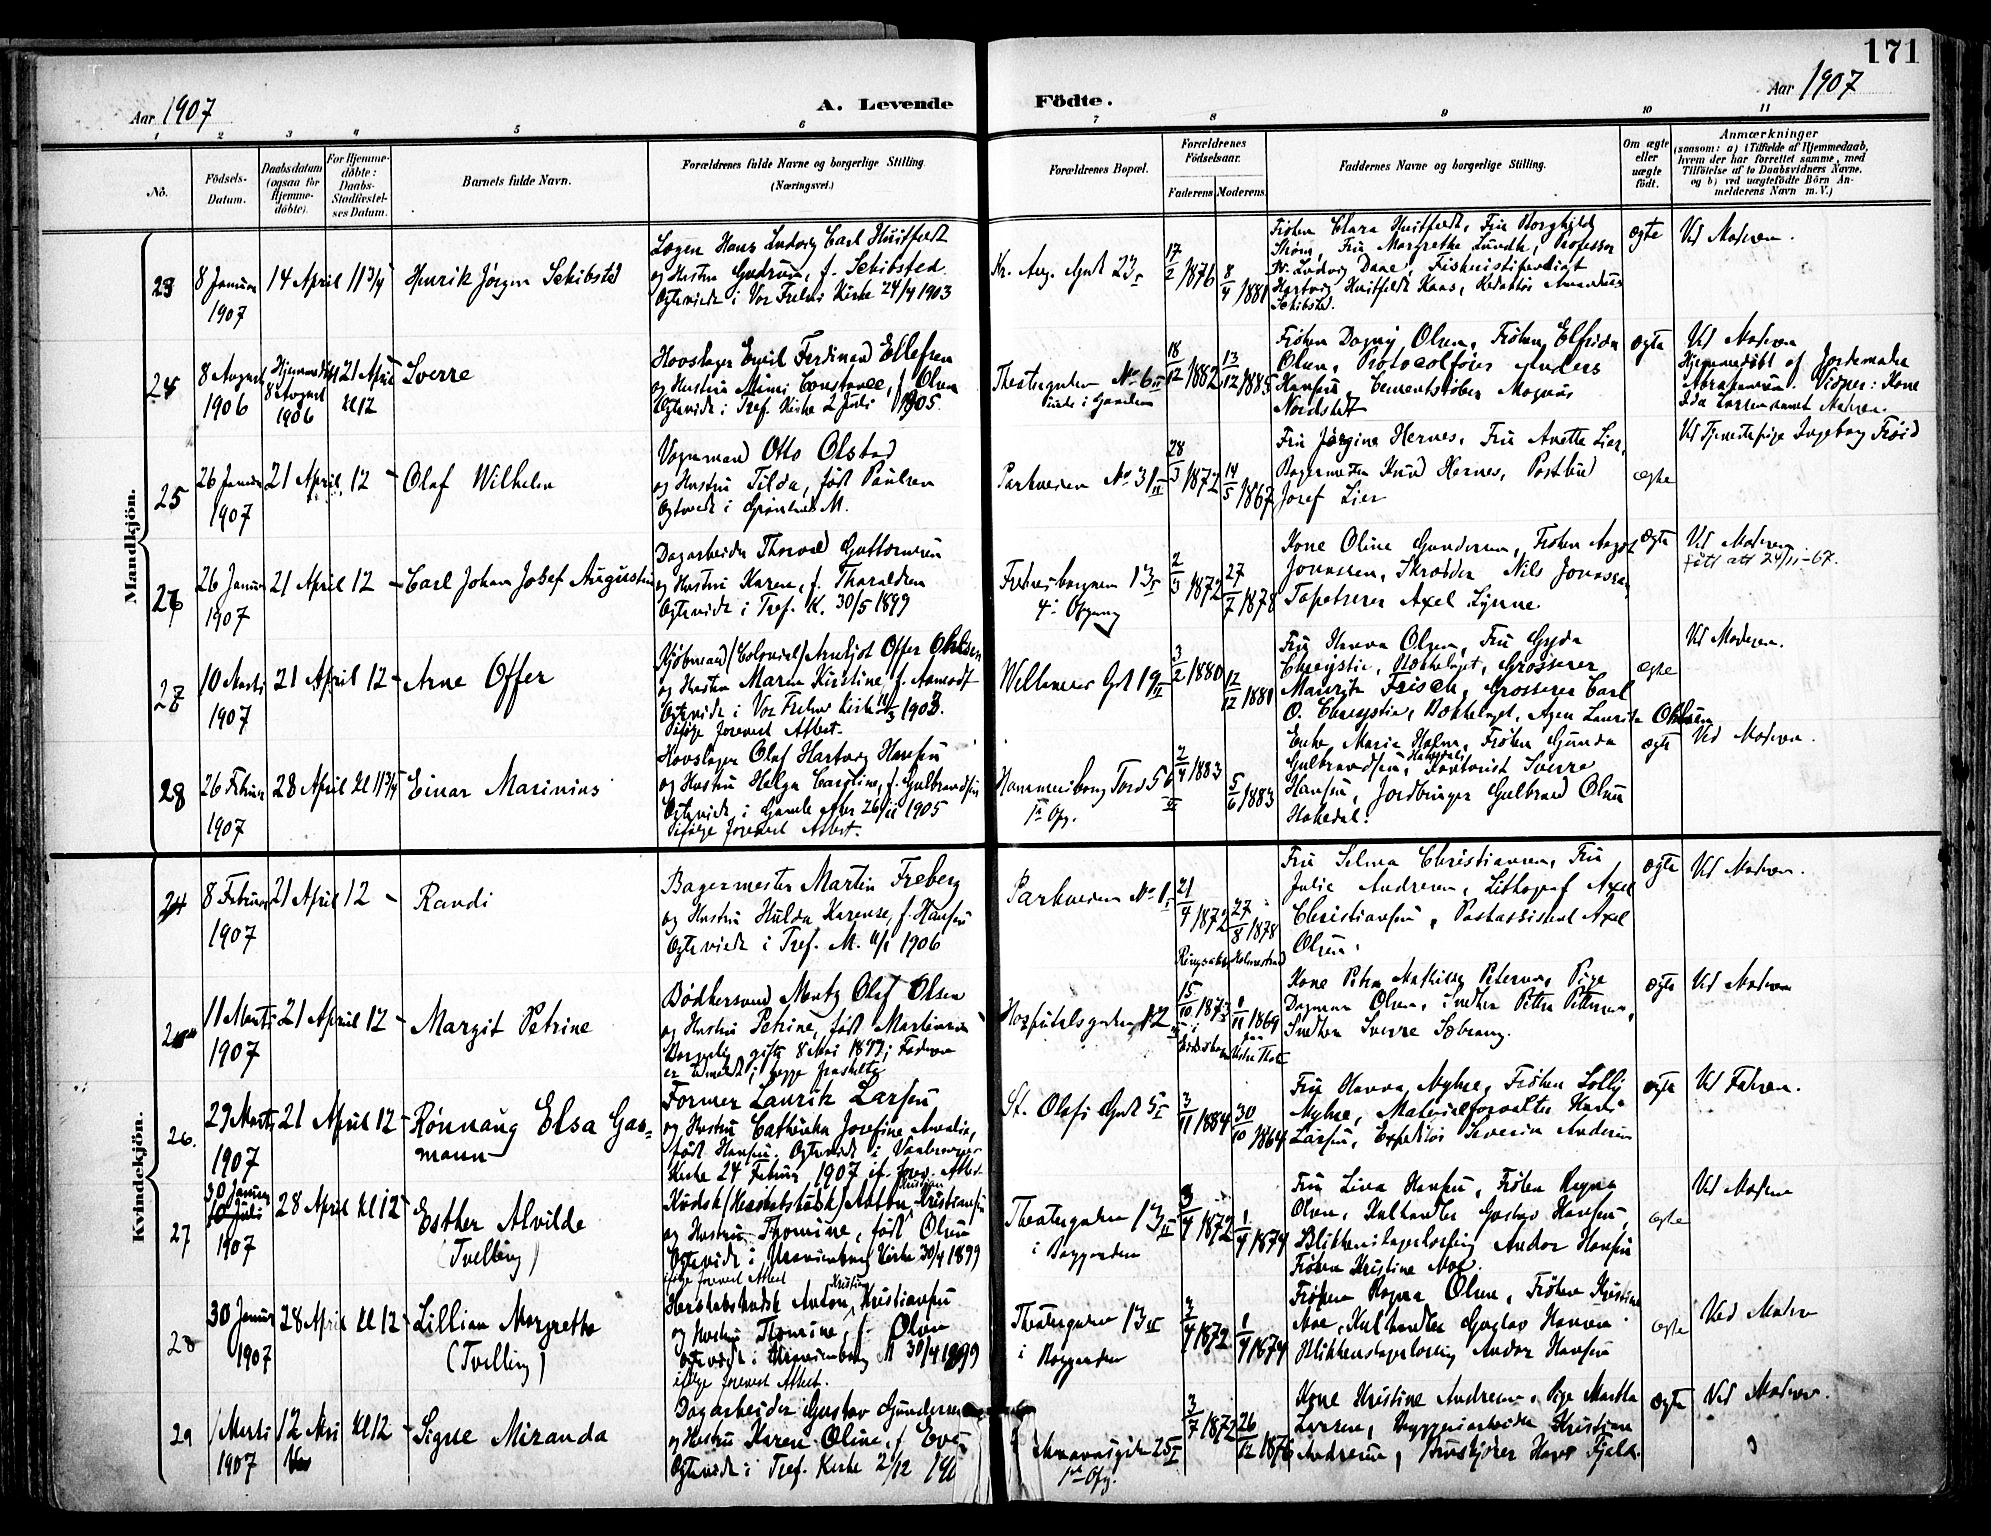 171
Aar 1907
A. Levende Födte.
Aar 1907
1 2 3 4 5 6 7 8 9 10 11
No.
Födsels-
Datum.
Daabsdatum
(ogsaa for
Hjemme-
döbte).
For Hjemme-
döbte:
Daabs-
Stadfæstel-
ses Datum.
Barnets fulde Navn.
Forældrenes fulde Navne og borgerlige Stilling.
(Næringsvei.)
Forældrenes Bopæl.
Forældrenes
Födselsaar.
Faderens. Moderens.
Faddernes Navne og borgerlige Stilling.
Om ægte
eller
uægte
födt.
Anmærkninger
(saasom: a) i Tilfælde af Hjemmedaab,
hvem der har forrettet samme, med
Tilföielse af to Daabsvidners Navne,
og b) ved uægtefödte Börn An-
melderens Navn m. V.)
Mandkjön.
23
8 Januar
1907
14 April 11 3/4
Henrik Jörgen Schibsted
Læge Hans Ludvig Carl Huitfeldt
og Hustru Gudrun, f. Schibsted.
Egteviede i Vor Frelsers Kirke 24/4 1903
Kr. Aug. Gade 23
17/2 1876
8/4 1881
Fröken Clara Huitfeldt, Fru Borghild
Ström, Fru Margrethe Lundh, Professor
Dr. Ludvig Daae,
Hartvig Huitfeldt Kaas, Redaktör Amandus
Schibsted.
ægte
Ved Moderen.
24
8 August
1906
Hjemmedöbt
8 August
1906
21 April
kl 12
Sverre
Hovslager Emil Ferdinand Ellefsen
og Hustru Mimi Constance, f. Olsen
Egteviede i Tref. Kirke 2 Juli 1905.
Theatergaden No 6 II
18/12 1882
13/12 1885
Fröken Dagny Olsen, Fröken Elfrida
Olsen, Protocolförer Anders
Hansen, Cementstöber Magnus
Nordstedt
ægte
Ved Moderen
Hjemmedöbt af Jordemoder
Abrahamsen. Vidner: Kone
Ida Larsen samt Moderen.
25
26 Januar
1907
21 April 12
Olaf Wilhelm
Vognmand Otto Olstad
og Hustru Tilda, födt Paulsen
Egteviede i Grönlands M.
Parkveien No 31 II
28/3 1872
14/5 1867
Fru Jörgine Hernes, Fru Anette Lier,
Bagermester Knud Hernes, Postbud
Josef Lier
ægte
Ved Tjenestepige Ingeborg Fröid
26
26 Januar
1907
21 April 12
Carl Johan Josef Augustin
Dagarbeider Thorvald Guttormsen
og Hustru Karen, f. Tharaldsen
Egteviede i Tref. K. 30/5 1899
Fredensborgveien 13 I
4. Opgang
2/3 1872
27/7 1878
Kone Oline Gundersen, Fröken Aagot
Jonassen, Skrædder Nils Jonassen,
Tapetserer Axel Lynne.
ægte
Ved Moderen
född att 24/11-67.
27
10 Marts
1907
21 April 12
Arne Offer
Kjöbmand (Colonial) Arnljot Offer Ohlsen
og Hustru Maren Kirstine, f. Aamodt
Egteviede i Vor Frelsers Kirke 1903.
Ifölge forevist Attest.
Welhavens Gade 19 II
3/2 1880
12/12 1881
Fru Hanna Olsen, Fru Gyda
Chrystie, Bækkelaget, Grosserer
Mauritz Frisch, Grosserer Carl
O. Chrystie, Bækkelaget, Agent Lauritz Ohlsen
ægte
Ved Moderen.
28
26 Februar
1907
28 April kl 11 3/4
Einar Marinius
Hovslager Olaf Hartvig Hansen
og Hustru Helga Caroline, f. Gulbrandsen
Egteviede i Gamle Aker 26/11 1905
Ifölge forevist Attest.
Hammersborg Torv 5 b
1ste Opg.
2/4 1883
5/6 1883
Enke Marie Holm, Fröken Gunda
Gulbrandsen, Kontorist Sverre
Hansen, Jordbruger Gulbrand Olsen
Hakedal.
ægte
Ved Moderen.
Kvindekjön.
24
8 Februar
1907
21 April 12
Randi
Bagermester Martin Freberg
og Hustru Hulda Karense, f. Hansen
Egteviede i Tref. M. 4/1 1906
Parkveien No 1
21/4 1872
Ringsaker
27/8 1878
Holmestrand
Fru Selma Christiansen, Fru
Julie Andresen, Lithograf Axel
Christiansen, Postassistent Axel
Olsen.
ægte
Ved Moderen.
11 Marts
1907
21 April 12
Margit Petrine
Bödkersvend Mentz Olaf Olsen
og Hustru Petrine, födt Martinsen
Borgerlig gifte 8 Mai 1899; Faderen
er udmeldt; begge fraskilte
Hospitalsgaden 12
15/10 1873
1/11 1869
Vestre Thoten
Kone Petra Mathilde Petersen, Pige
Dagmar Olsen, Snedker Petter Pettersen,
Snedker Sverre Söbrang.
ægte
Ved Moderen
26.
29 Marts
1907
21 April 12
Rönnaug Elsa Gas-
mann
Former Lauritz Larsen
og Hustru Cathinka Josefine Amalie,
födt Hansen. Egteviede i Vaalerengens
Kirke 24 Februar 1907 if. forev. Attest
St. Olafs Gade 5 I
3/11 1884
30/10 1864
Fru Hanna Myhre, Fröken Lolly
Myhre, Materialforvalter Hans
Larsen, Expeditör Severin Andersen
ægte
Ved Faderen.
27
30 Januar
1907
28 April kl 12
Esther Alvilde
(Tvilling)
Kudsk (Herskabskudsk) Anton Kristian Kristiansen
og Hustru Thomine, födt Olsen
Egteviede i Uranienborg Kirke 30/4 1899
ifölge forevist Attest
Theatergaden 13 II
i Baggaarden
3/4 1872
1/4 1874
Fru Lina Hansen, Fröken Ragna
Olsen, Kulhandler Gustav Hansen,
Blikkenslagerlærling Andor Hansen
Fröken Kristine Moe.
ægte
Ved Moderen
28
30 Januar
1907
28 April kl 12
Lillian Margrethe
(Tvilling)
Herskabskudsk Anton Kristian Kristiansen
og Hustru Thomine, f. Olsen
Egteviede i Uranienborg K 30/4 1899
ifölge forevist Attest.
Theatergaden 13 II
i Baggaarden
3/4 1872
1/4 1874
Fröken Ragna Olsen, Fröken Kristine
Moe, Kulhandler Gustav Hansen
Blikkenslagerlærling Andor Hansen
ægte
Ved Moderen
29
1 Marts
1907
12 Mai kl 12
Signe Miranda
Dagarbeider Gustav Gundersen
og Hustru Karen Oline, f.
Egteviede i Tref. Kirke 2/12
25 I
1ste Opg.
3/7 1872
26/12 1876
Kone Kristine Andresen, Pige Martha
Larsen, Bryggeriarbeider Kristian
Andresen, Hans Fjeld.
ægte
Ved Moderen.